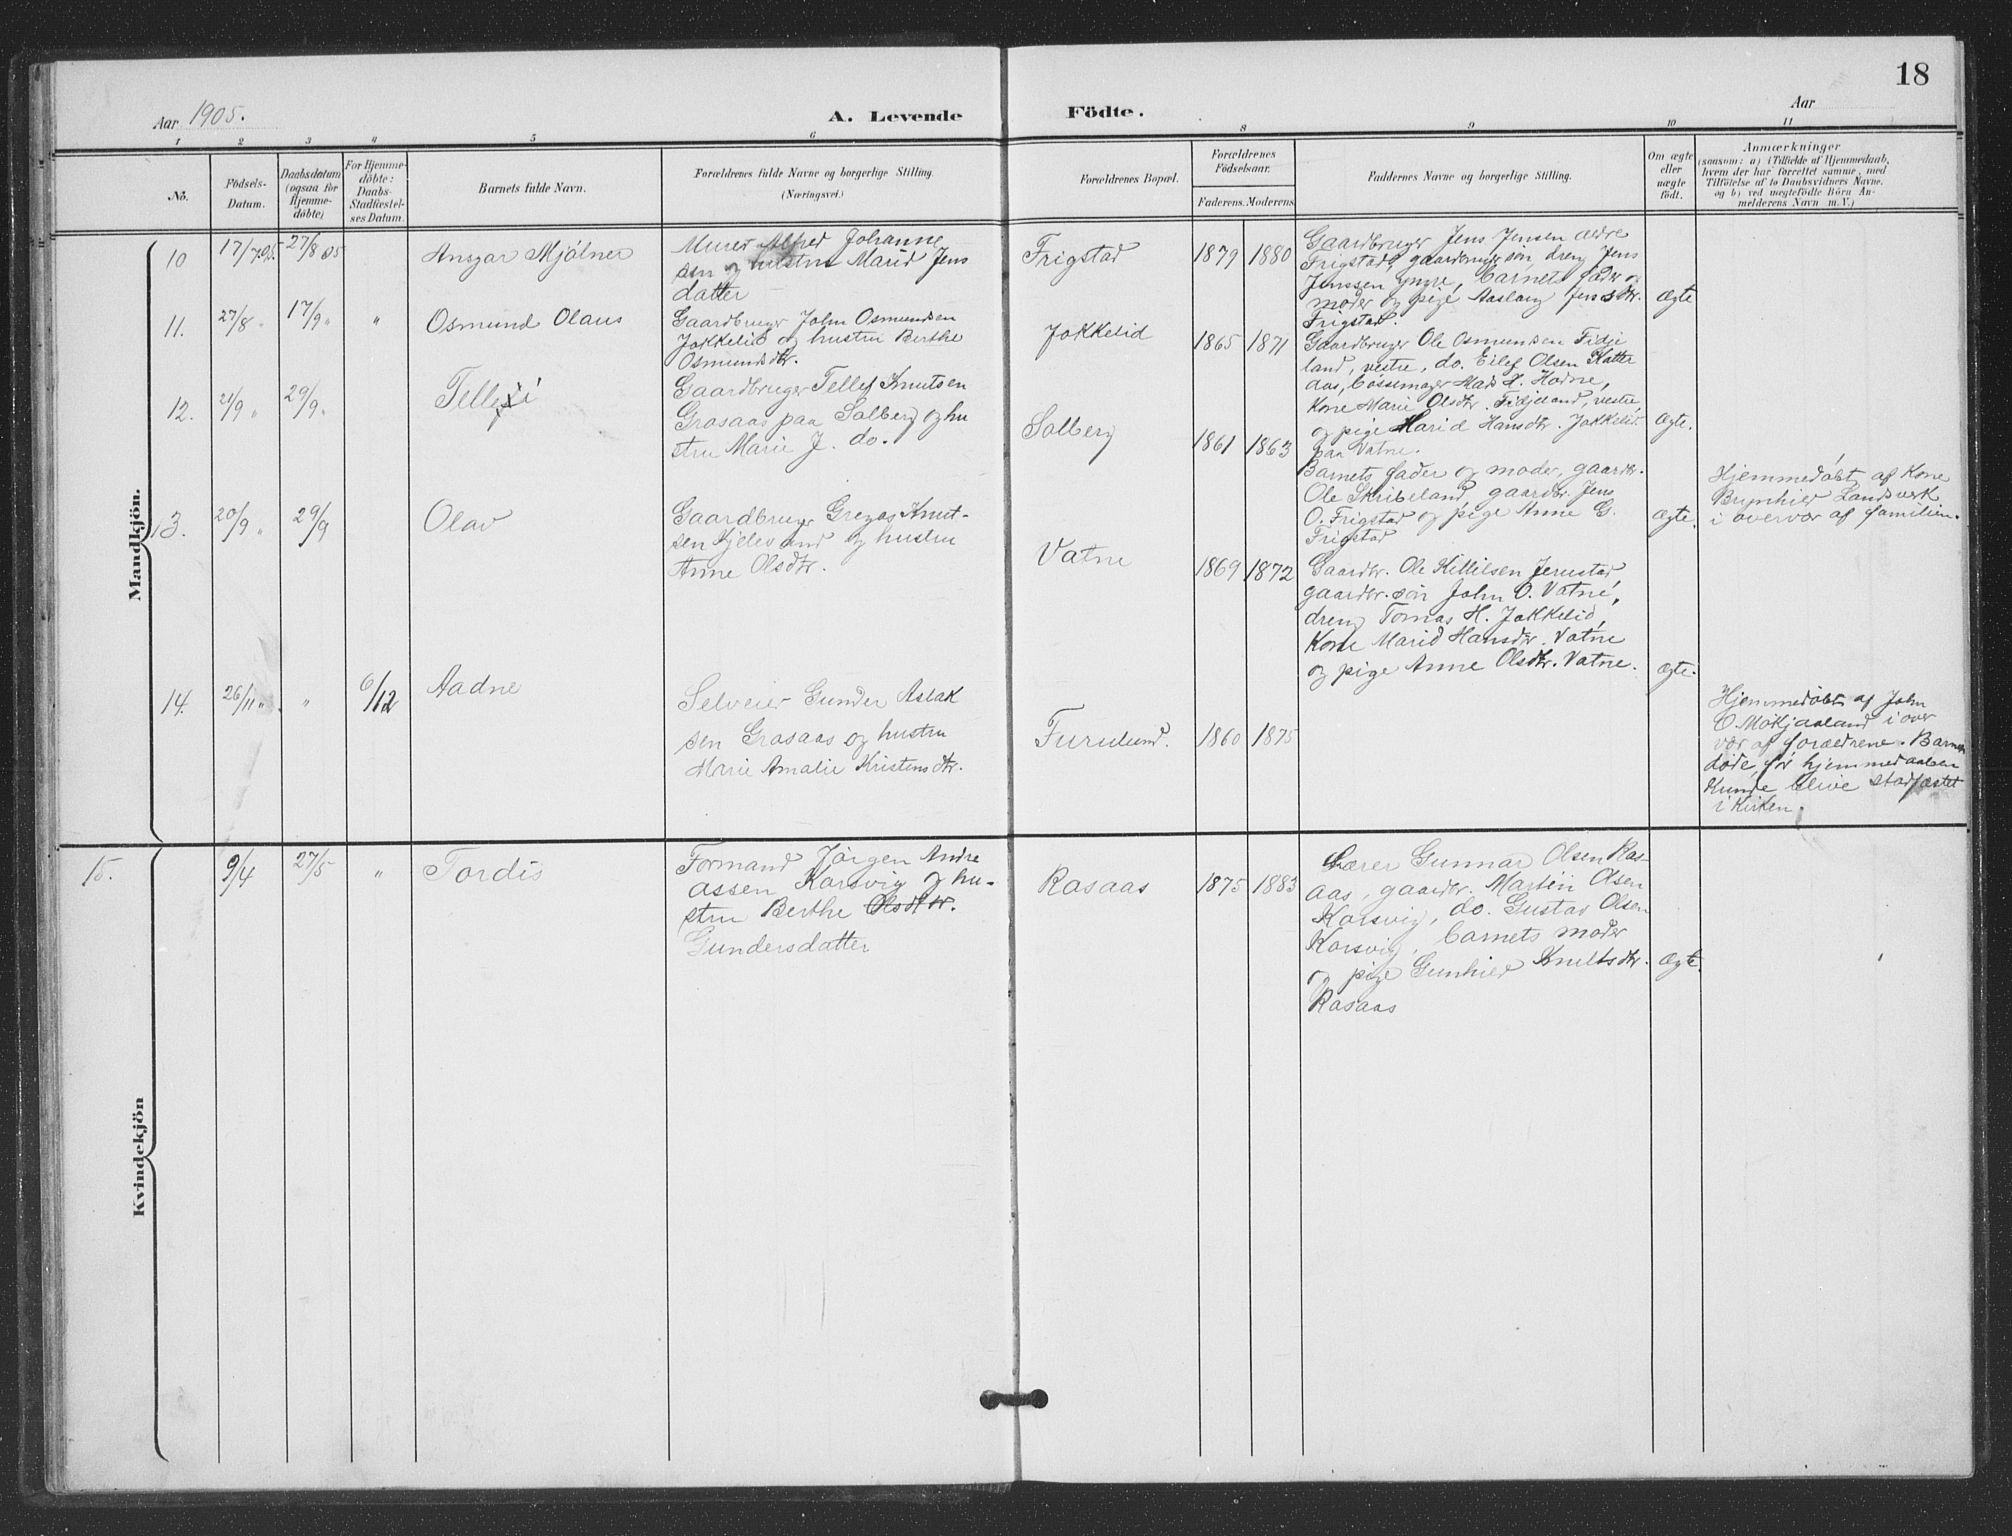 18
Aar 1905.
A. Levende Födte.
Aar
1 2 3 4 5 6 8 9 10 11
No.
Födsels-Datum.
Daabsdatum (ogsaa for Hjemme-döbte)
For Hjemme-döbte: Daabs-Stadfæstel-ses Datum.
Barnets fulde Navn.
Forældrenes fulde Navne og borgerlige Stilling.
(Næringsvei.)
Forældrenes Bopæl.
Forældrenes Födselsaar.
Faderens. Moderens.
Faddernes Navne og borgerlige Stilling.
Om ægte eller uægte født.
Anmærkninger
(saasom: a) i Tilfælde af Hjemmedaab,
hvem der har forrettet samme, med
Tilföielse af to Daabsvidners Navne.
og b) ved uægtefödte Börn An-
melderens Navn m. V.)
Mandkjön.
10 17/7 05. 27/8 05 Ansgar Mjölner
Murer Alfred Johanne
sen og hustru Marid Jens
datter
Frigstad 1879 1880
Gaardbruger Jens Jensen ældre
Frigstad, gaardbruger søn, dreng Jens
Jenssen yngre, barnets fader og
moder og pige Aaslaug Jensdtr.
Frigstad.
Ægte
11. 27/8 " 17/9 " " Osmund Olaus
Gaardbruger John Osmundsen
Jokkelid og hustru Berthe
Osmundsdtr.
Jokkelid 1865 1871
Gaardbruger Ole Osmundsen Fidje
land, vestre, do. Eilef Olsen Katter
aas, Mads H. Hodne,
Kone Marie Olsdtr. Fidjeland, vestre,
og pige Marid Hansdtr. Jokkelid
paa Vatne.
Ægte.
12. 21/9 " 29/9 " Tellef
Gaardbruger Tellef Knutsen
Grosaas paa Solberg og hu
stru Marie J. do.
Solberg 1861 1863
Barnets fader og moder, gaardbr.
Ole Skribeland, gaardbr. Jens
O. Frigstad og pige Anne G.
Frigstad
Ægte.
Hjemmedøbt af Kone
Brynhild Landsverk
i overvær af familien.
13. 20/9 " 29/9 Olav
Gaardbruger Grezos Knut-
sen og hustru
Anne Olsdtr.
Vatne 1869 1872
Gaardbr. Ole Killilsen Jerustad,
gaardbr. søn John O. Vatne,
dreng Tomas H. Jokkelid,
Kone Marid Hansdtr. Vatne
og pige Anne Olsdtr. Vatne.
Ægte.
14. 26/11 " " 6/12 Aadne
Selveier Gunder Aslak
sen Grosaas og hustru
Marie Amalie Kristensdtr.
Furulund. 1860 1875
Hjemmedøbt af John
O. Mokjaaland i over
vær af forældrene. Barnet
døde før hjemmedaaben
kunde blive stadfæstet
i Kirken.
Kvindekjön
15. 9/4 27/5 " Tordis
Formand Jørgen Andre
assen Korsvig og hu-
stru Berthe Olsdtr.
Gundersdatter
Rosaas 1875 1883
Lærer Gunnar Olsen Ros-
aas, gaardbr. Martin Olsen
Korsvig, do. Gustav Olsen
Korsvig, barnets moder
og pige Gunhild Knutsdtr.
Rosaas
Ægte.